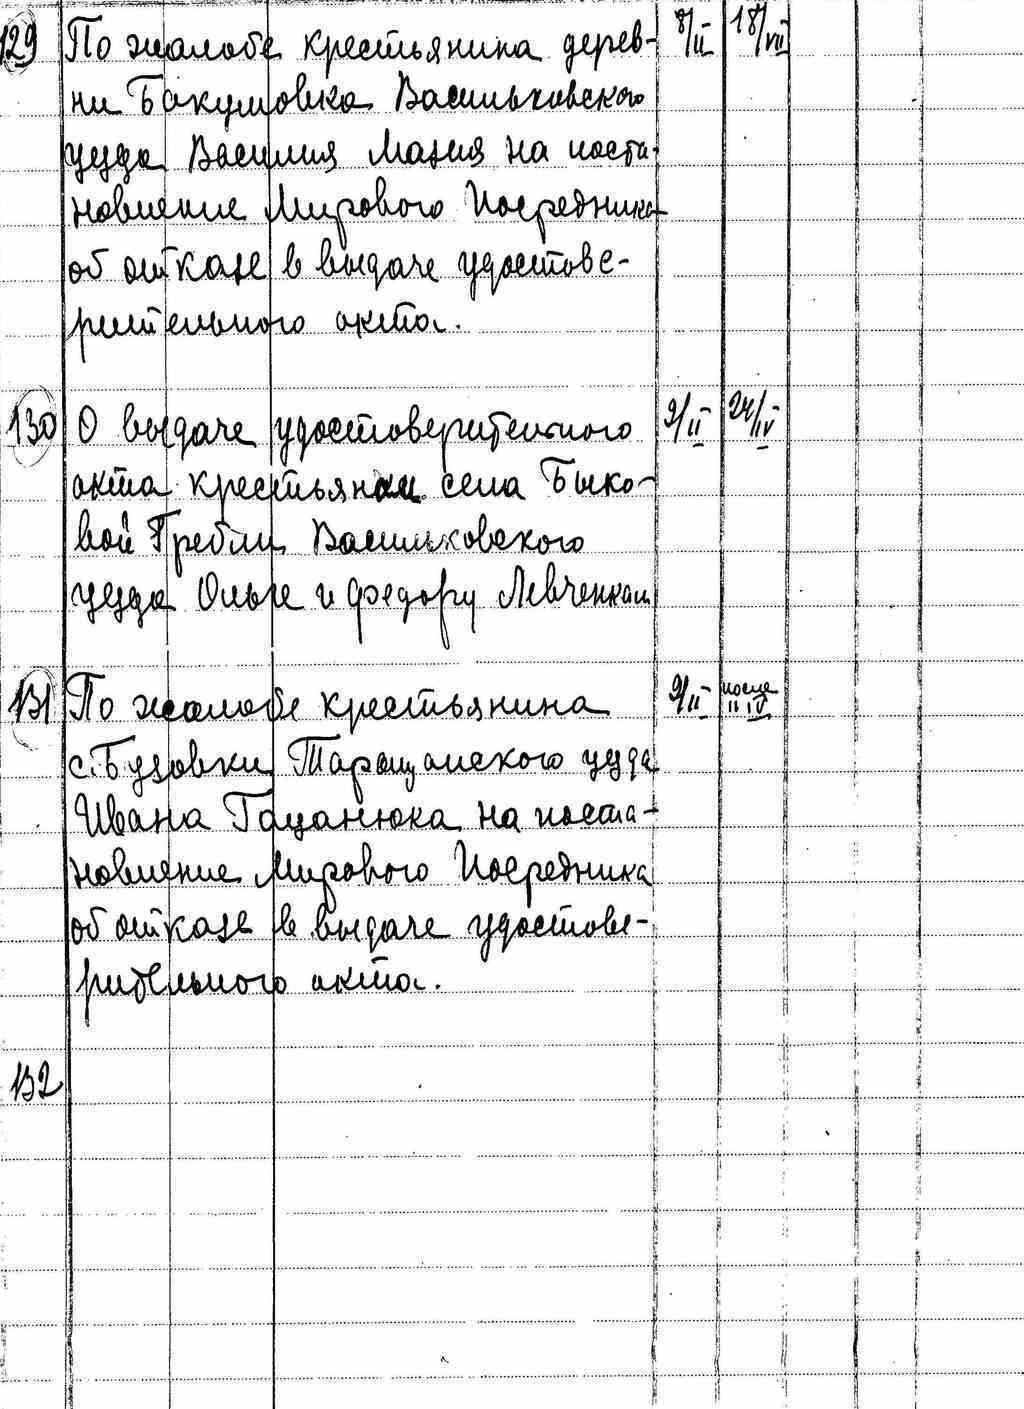 129 По жалобе крестьянина дерев- 8/II 18/VII
ни Бакумовка Васильковского
уезда Василия Мазия на поста-
новление Мирового Посредника
об отказе в выдаче удостове-
рительного акта.
130 О выдаче удостоверительного 9/II 24/IV
акта крестьянам села Быко-
вой Гребли Васильковского
уезда Ольге и Федору Левченкам
131 По жалобе крестьянина 9/II после
с. Бузовки Таращанского уезда II IV
Ивана Гацанюка на поста-
новление Мирового Посредника
об отказе в выдаче удостове-
рительного акта.
132